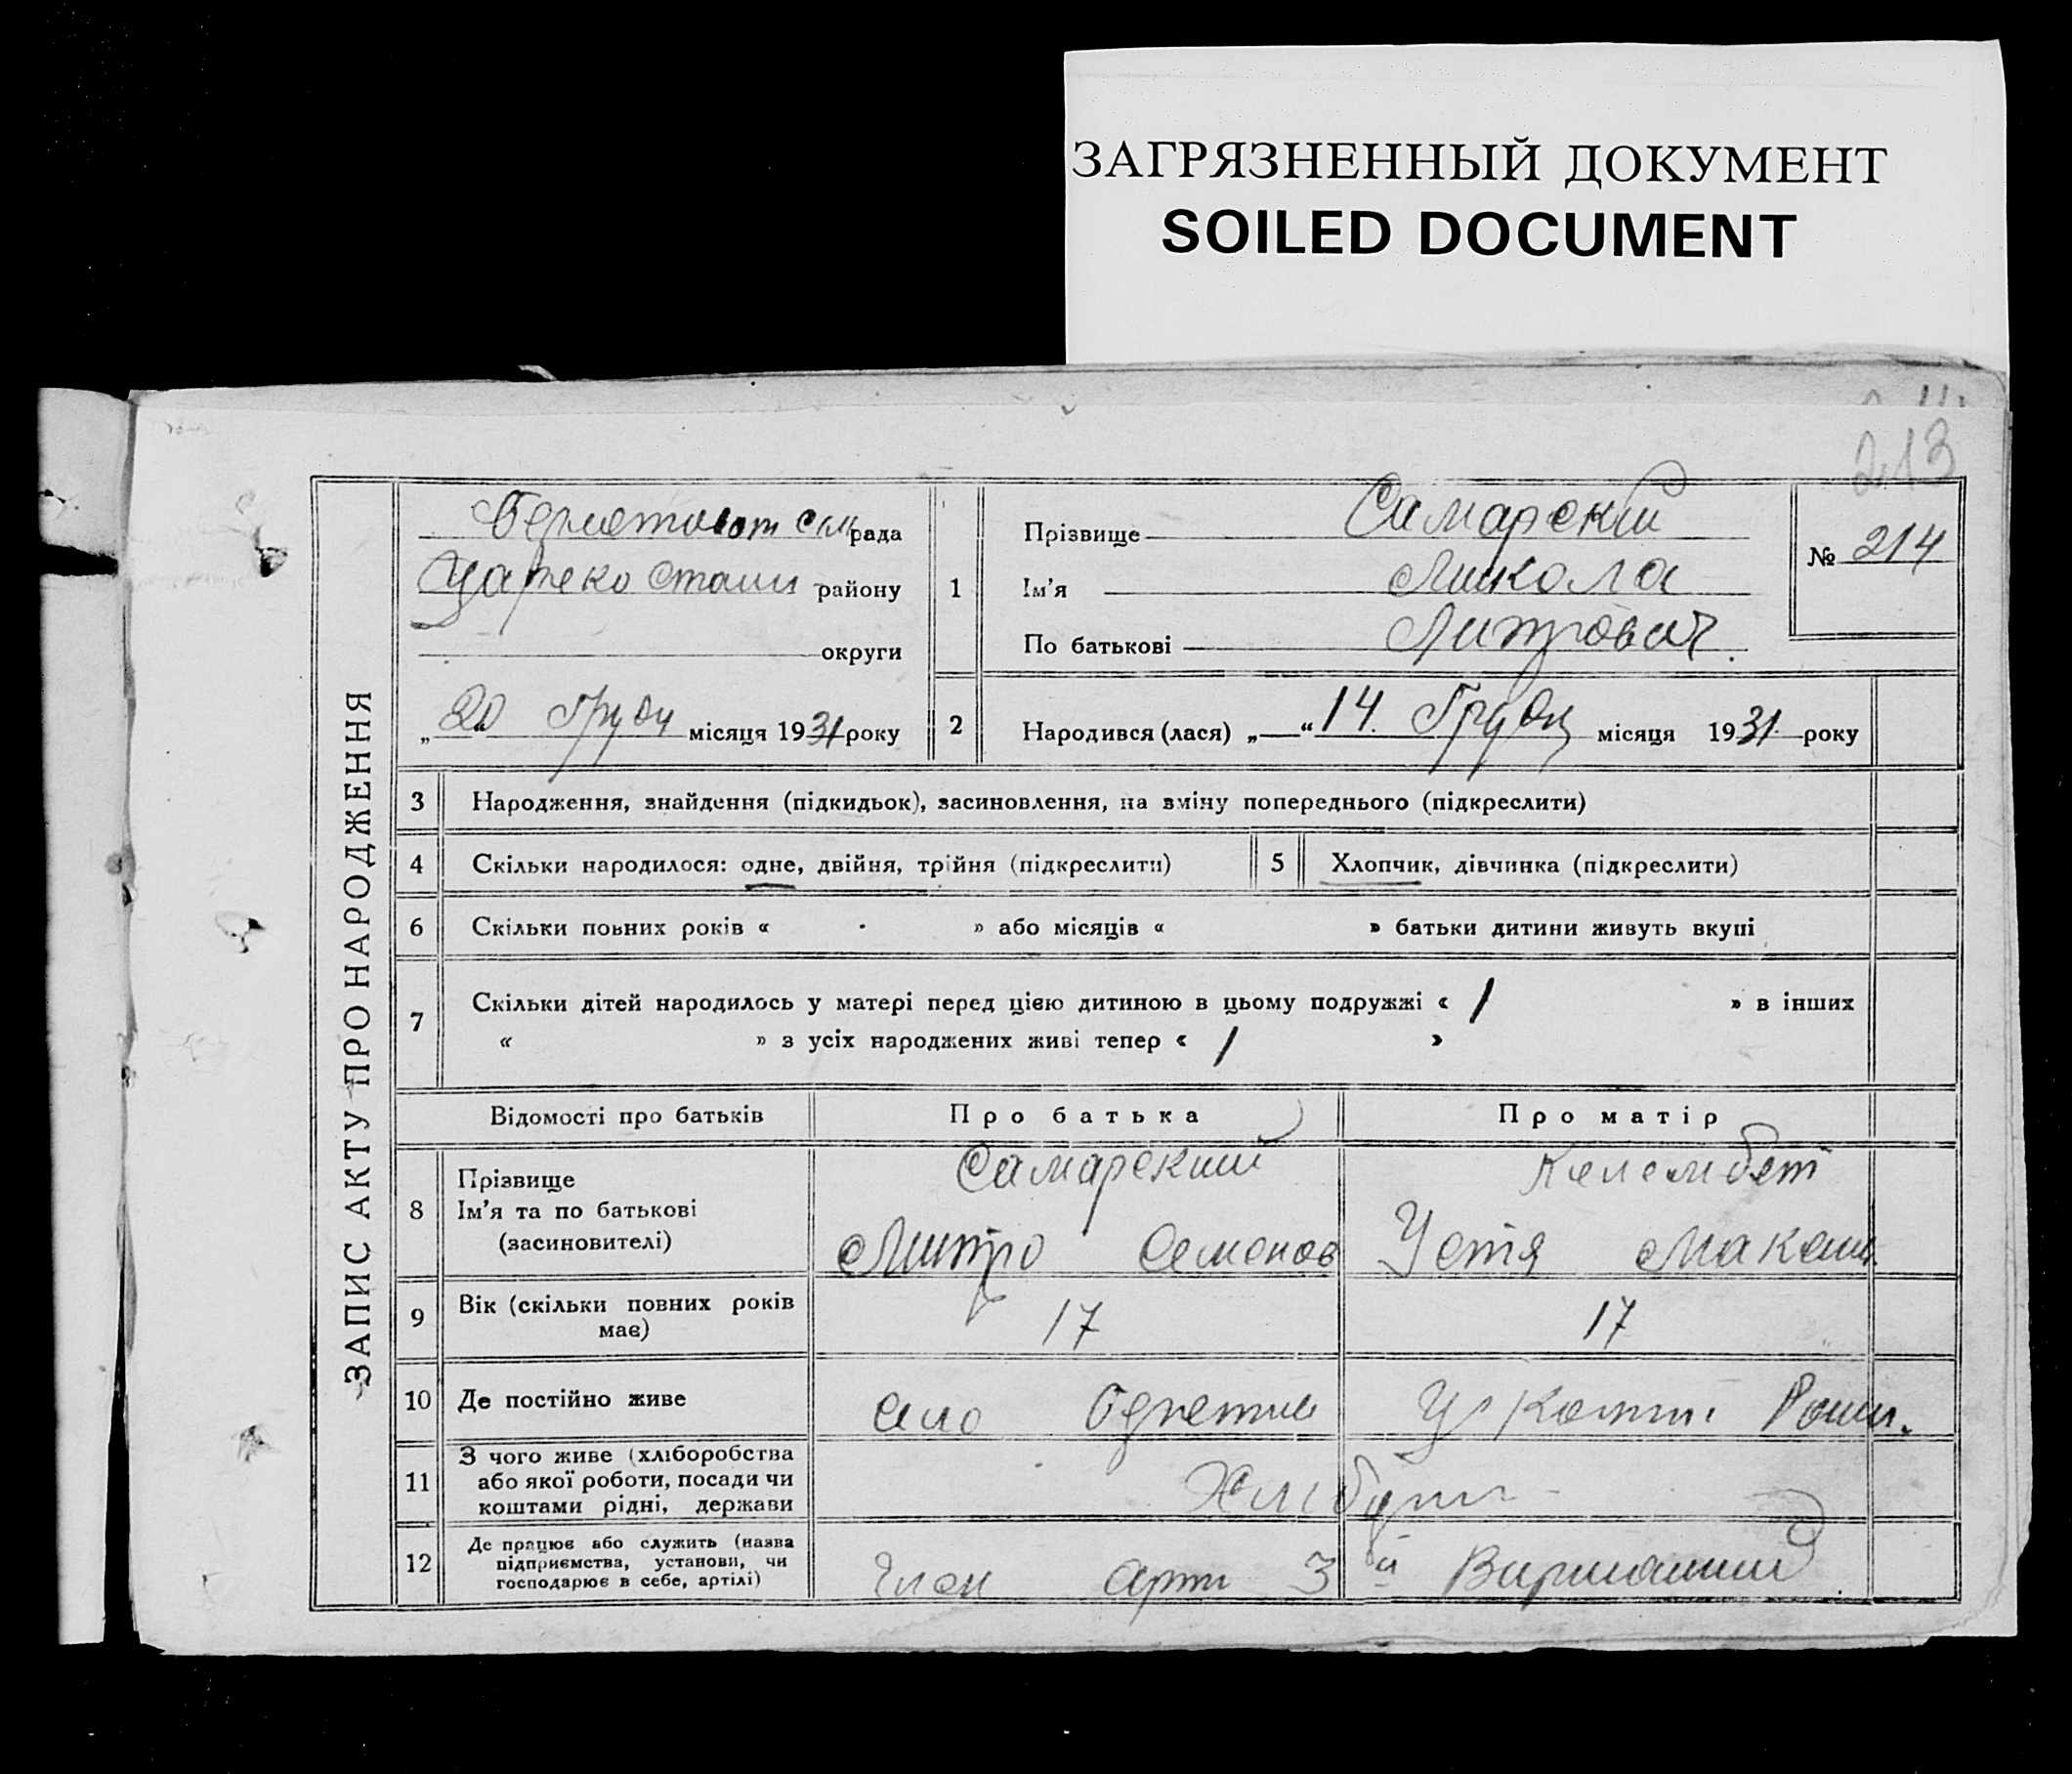 ЗАГРЯЗНЕННЫЙ ДОКУМЕНТ
SOILED DOCUMENT
213
ЗАПИС АКТУ ПРО НАРОДЖЕННЯ
рада
району
округи
„20 Грудн місяця 1931 року
1
Прізвище Самарский
Ім'я Микола
По батькові Митрович.
№ 214
2
Народився (лася) „—“ 14. Грудн місяця 1931 року
3 Народження, знайдення (підкидьок), засиновлення, на зміну попереднього (підкреслити)
4 Скільки народилося: одне, двійня, трійня (підкреслити)
5 Хлопчик, дівчинка (підкреслити)
6 Скільки повних років « » або місяців « » батьки дитини живуть вкупі
7 Скільки дітей народилось у матері перед цією дитиною в цьому подружжі « 1 » в інших
« » з усіх народжених живі тепер « 1 »
Відомості про батьків Про батька Про матір
8 Прізвище
Ім'я та по батькові
(засиновителі)
Самарский
Митро Семенов
Келембет
Устя Максим.
9 Вік (скільки повних років
має)
17 17
10 Де постійно живе
село
11 З чого живе (хліборобства
або якої роботи, посади чи
коштами рідні, держави
12 Де працює або служить (назва
підприємства, установи, чи
господарює в себе, артілі)
Член арти 3й